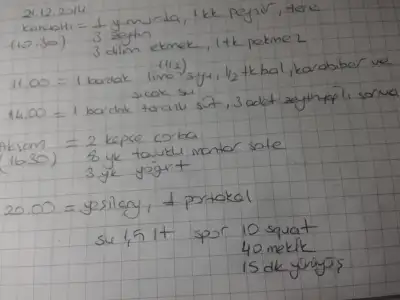 21.12.2014
Kahvaltı = 1 yumurta, 1 kk peynir, dere
(10.30) 3 zeytin
3 dilim ekmek, 1 tk pekmez
11.00 = 1 bardak (1/2) limon suyu, 1/2 tk bal, karabiber ve
sıcak su
14.00 = 1 bardak tarçınlı süt, 3 adet sarma
Akşam = 2 kepçe çorba
(16.30) 8 yk tavuklu mantar sote
3 yk yoğurt
20.00 = yeşilçay, 1 portakal
su 1,5 lt spor 10 squat
40 mekik
15 dk yürüyüş